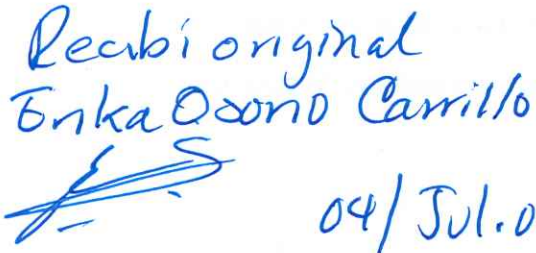 Recibí original
Erika Osorio Carrillo
04/Jul.0